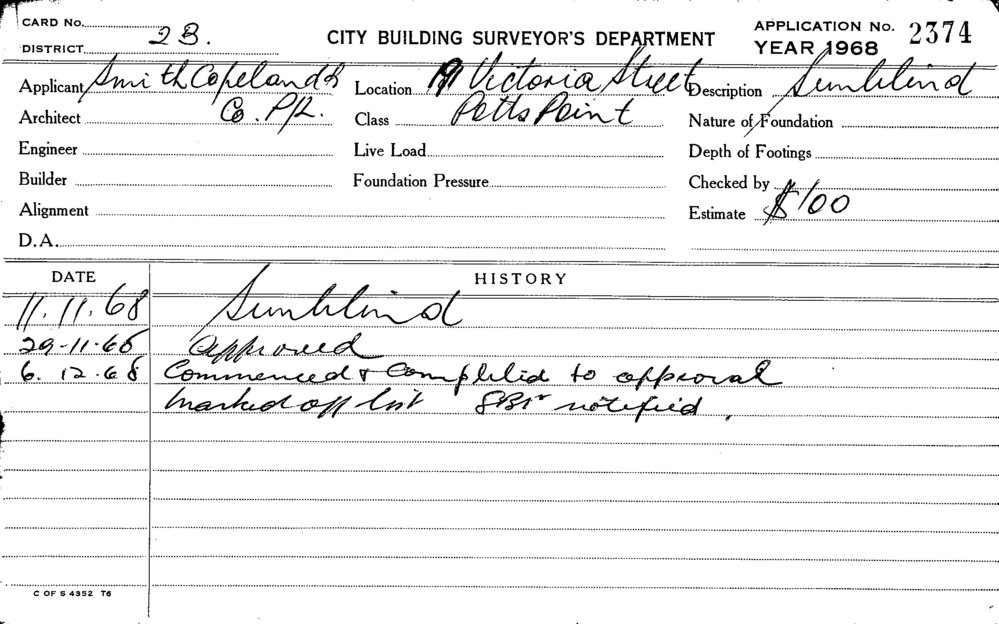 CARD No.
DISTRICT 2B.
CITY BUILDING SURVEYOR'S DEPARTMENT
APPLICATION No. 2374
YEAR 1968
Applicant Smith Copeland &
Location 191 Victoria Street
Description Sunblind
Architect Co. P/L.
Class Potts Point
Nature of Foundation
Engineer
Live Load
Depth of Footings
Builder
Foundation Pressure
Checked by
Alignment
Estimate $100
D.A.
DATE HISTORY
11.11.68 Sunblind
29-11-68 approved
6.12.68 Commenced & Completed to approval
marked off list notified.
C OF S 4352 T6